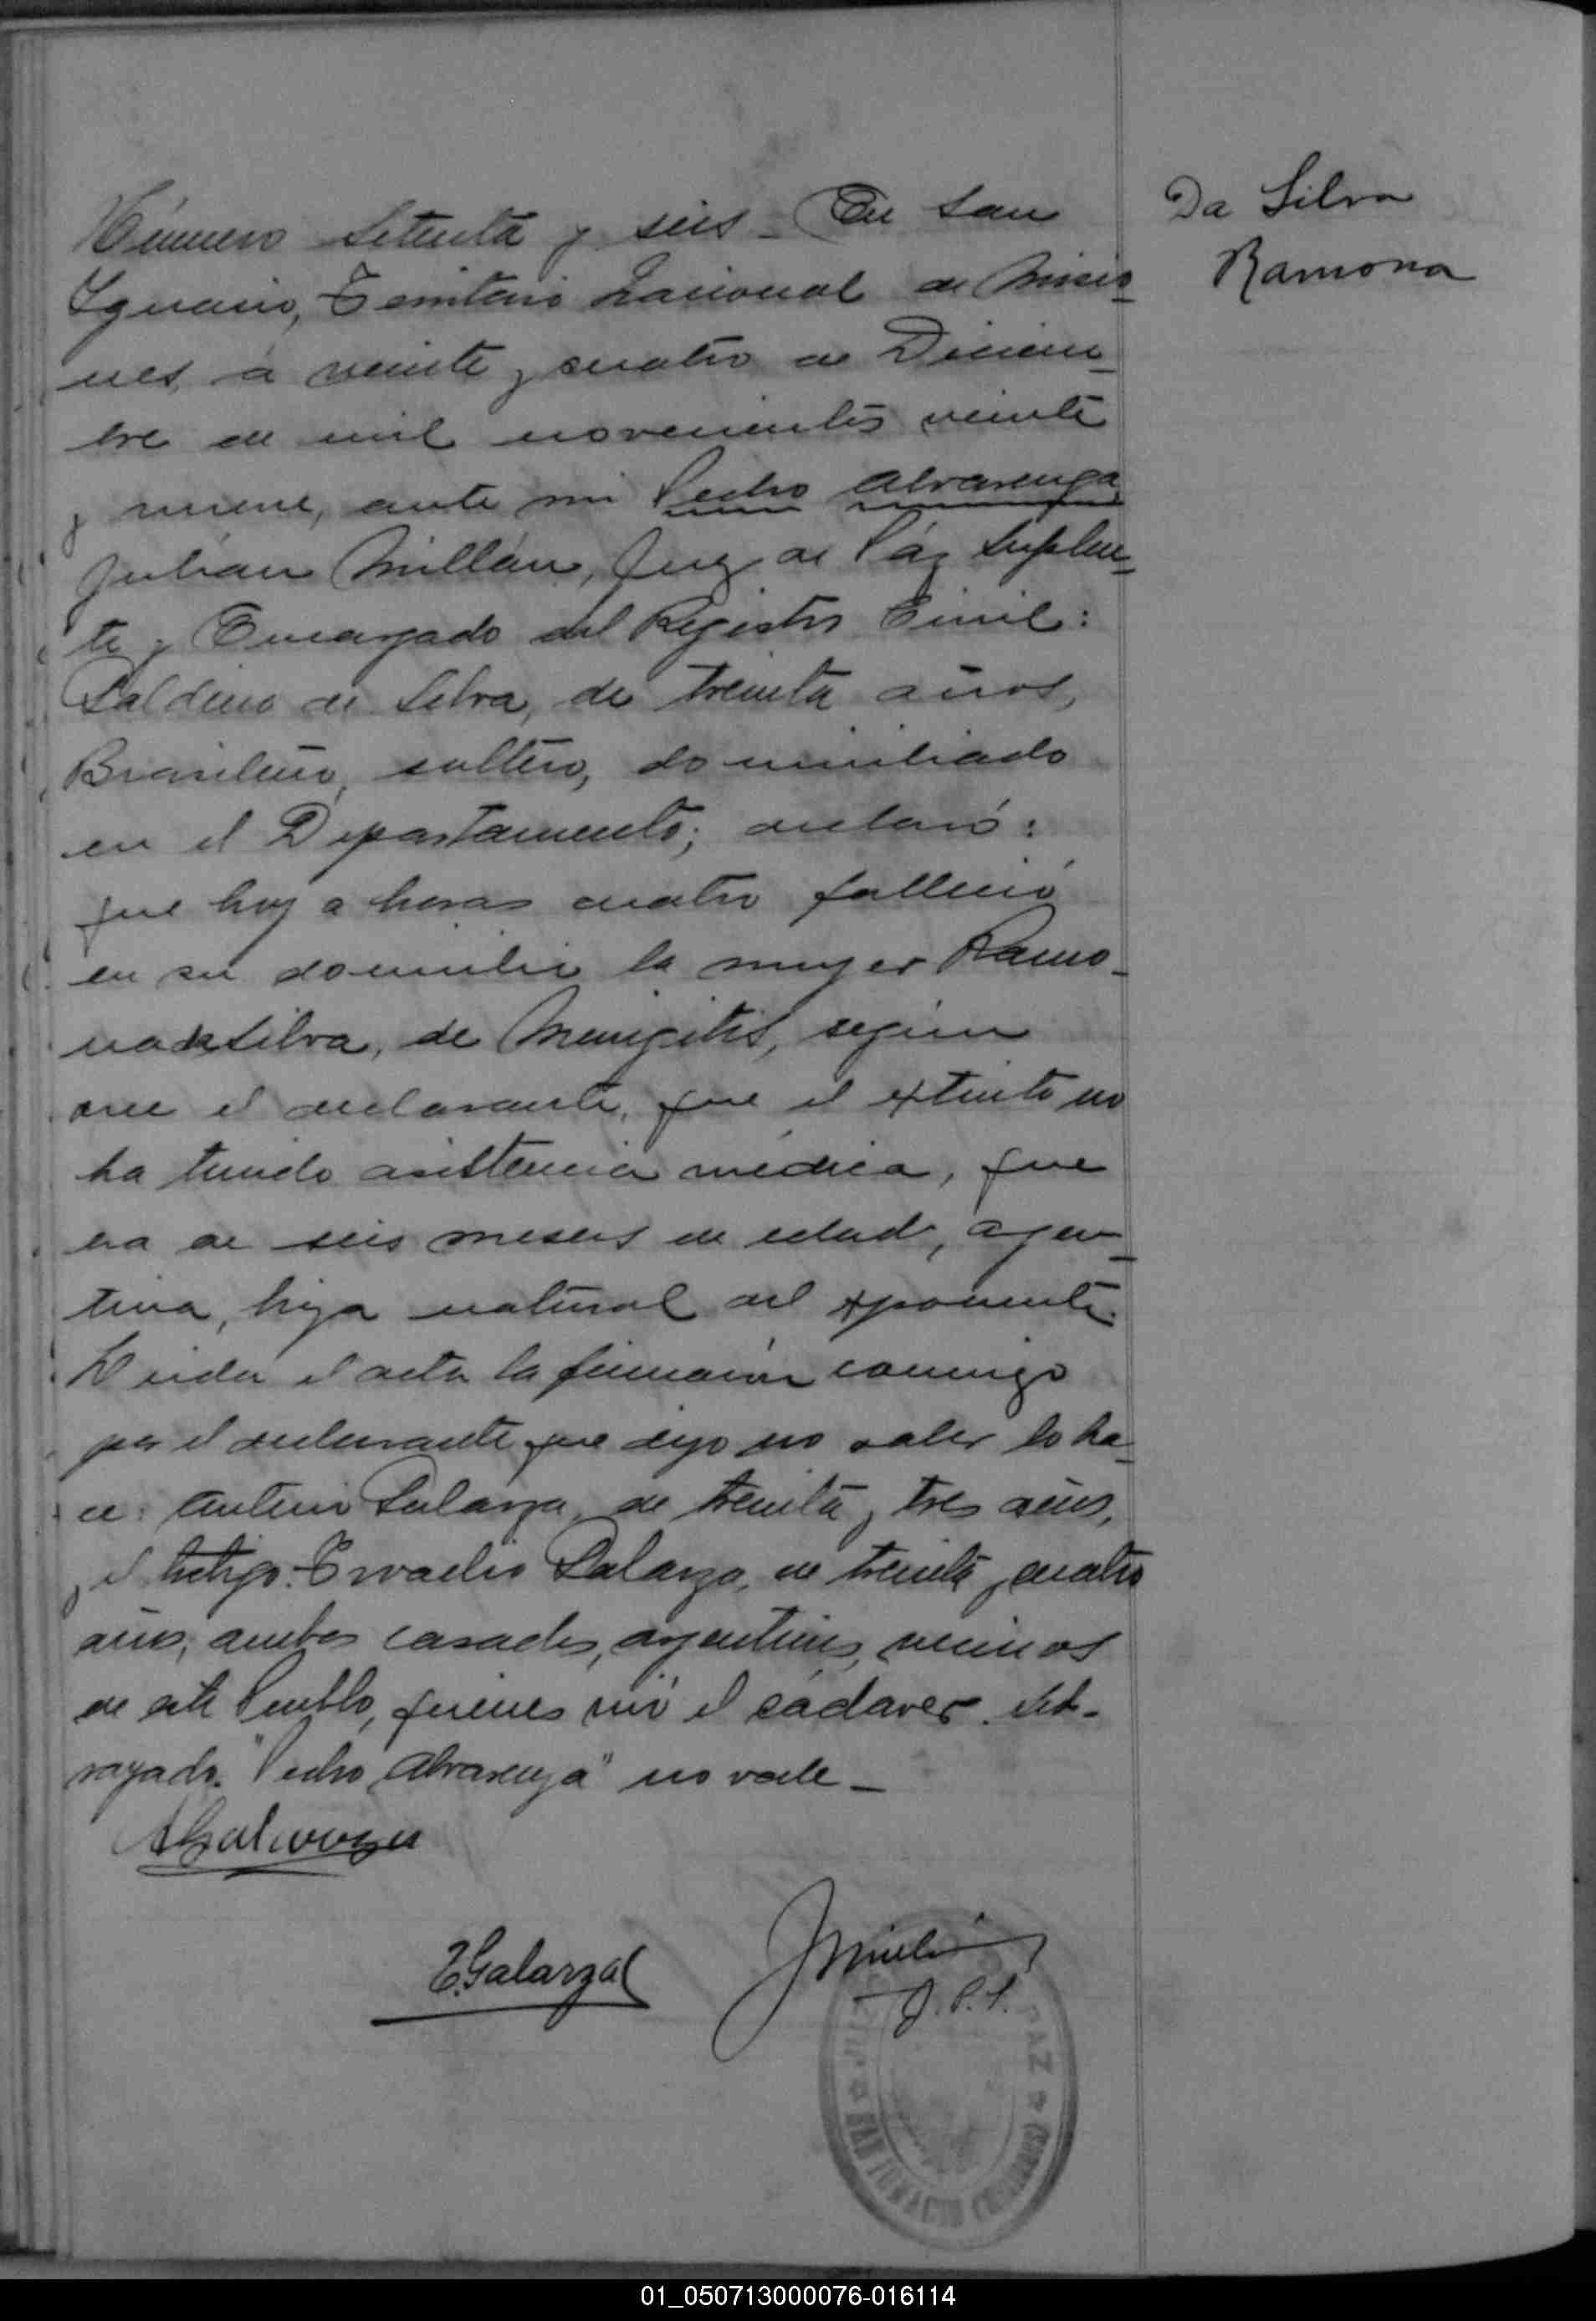 Da Silva
Ramona
Número setenta y seis - En San
Ignacio, Territorio Nacional de Misio-
nes, a veinte y cuatro de Diciem-
bre de mil novecientos veinte
y nueve, ante mi Pedro Alvarenga
Julian Millán, Juez de Páz Suplen-
te y Encargado del Registro Civil:
de Silva, de treinta años,
Brasilero, soltero, domiciliado
en el Departamento; declaró:
que hoy a horas cuatro falleció
en su domicilio la mujer Ramo-
na da Silva, de Meningitis, según
el declarante, que el extinto no
ha tenido asistencia médica, que
era de seis meses de edad, argen-
tina, hija natural del exponente.
Leida el acta la firmaron conmigo
por el declarante que dijo no saber lo ha-
ce: Antonio Galarza, de treinta y tres años,
y el testigo: Galarza, de treinta y cuatro
años, ambos casados, argentinos, vecinos
de este Pueblo, quienes vió el cádaver. Sub-
rayado: "Pedro Alvarenga" no vale -
E. Galarza
J Millán
J. P. S.
PAZ
SAN IGNACIO (MISIONES)
01_050713000076-016114